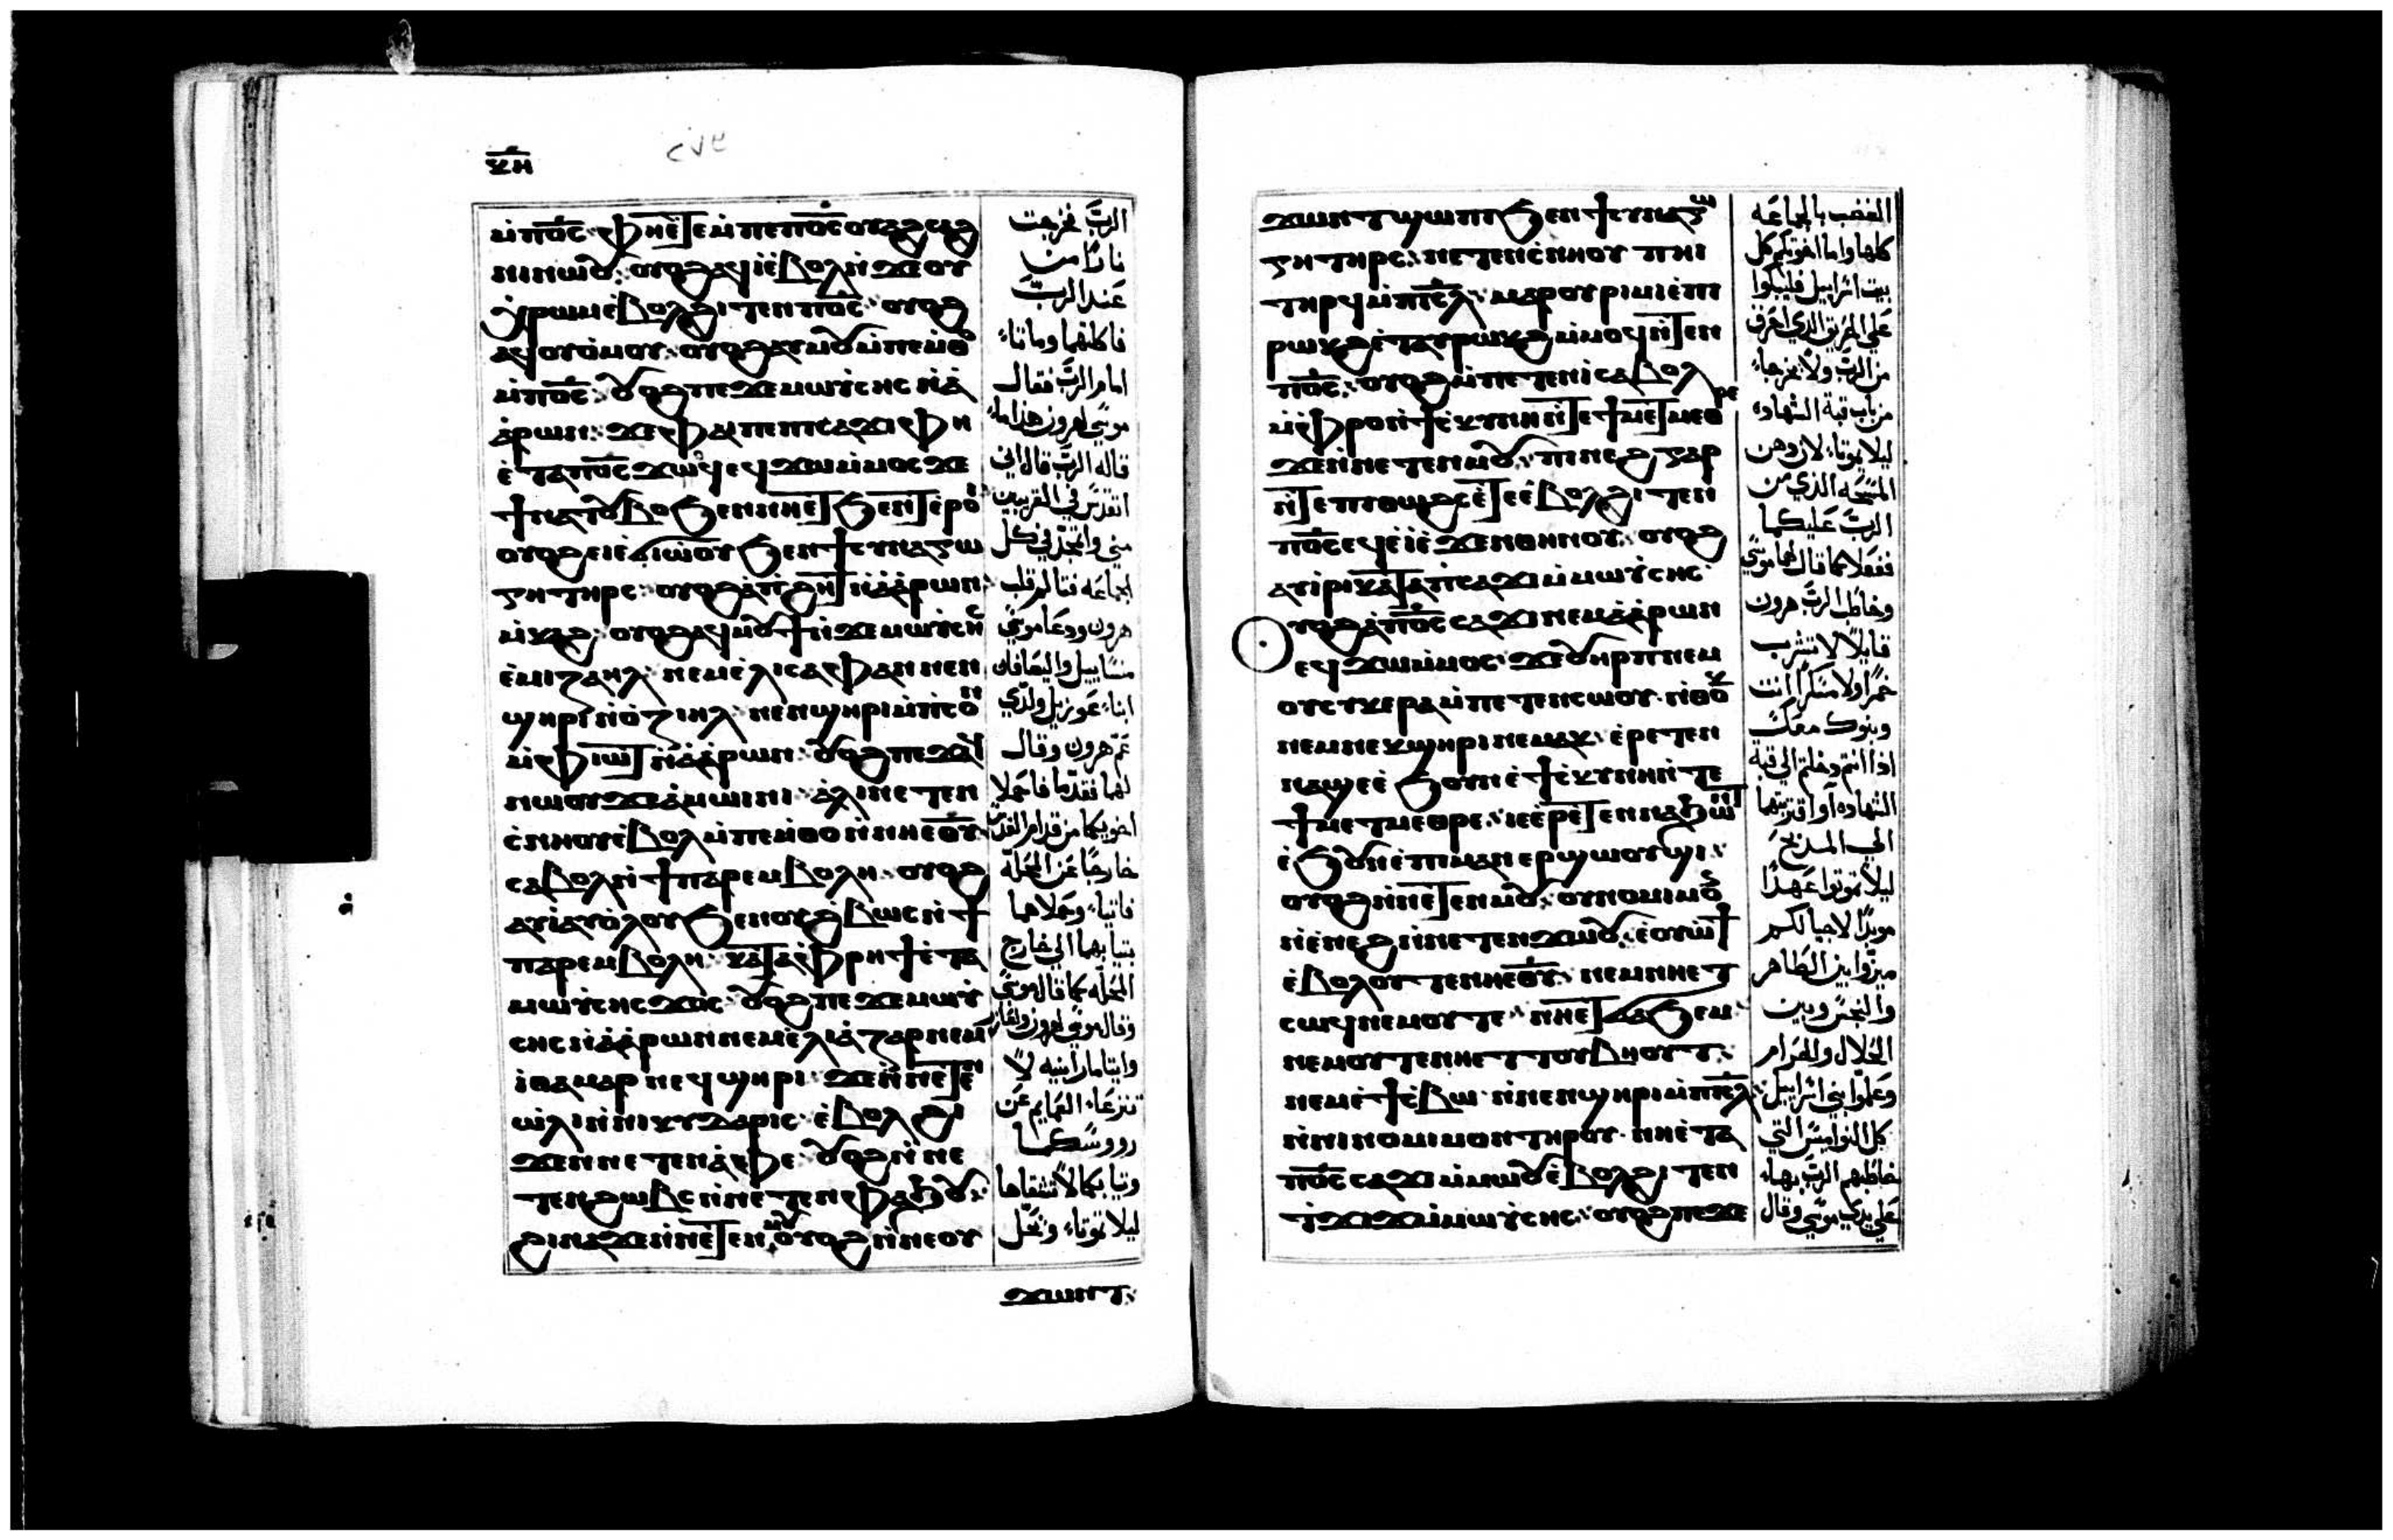 ⲭⲏ
٢٧٤
ⲙ̀ⲡⲟ̅ⲥ̅ ⲫⲏⲉ̀ⲧⲉⲙⲡⲉⲡⲟ̅ⲥ̅ ⲟⲩⲁϩⲥⲁϩ
ⲛⲓⲛⲱⲟⲩ: ⲟⲩⲟϩ ⲁϥⲓ̀ⲉ̀ⲃⲟⲗ ⲛ̀ϫⲉⲟⲩ
ⲭ̀ⲣⲱⲙ ⲉ̀ⲃⲟⲗϩⲓⲧⲉⲛ ⲡⲟ̅ⲥ̅ ⲟⲩⲟϩ
ⲁϥⲟⲩⲟ̀ⲙⲟⲩ: ⲟⲩⲟϩ ⲁⲩⲙⲟⲩ ⲙ̀ⲡⲉⲙ̀ⲑⲟ
ⲙ̀ⲡⲟ̅ⲥ̅: ⲟⲩⲟϩ ⲡⲉϫⲉ ⲙⲱⲩ̀ⲥⲏⲥ ⲛ̀ⲁ̀
ⲁ̀ⲣⲱⲛ: ϫⲉ ⲫⲁⲓ ⲡⲉ ⲡⲓⲥⲁϫⲓ ⲫⲏ
ⲉ̀ⲧⲁ ⲡⲟ̅ⲥ̅ ϫⲟϥ ⲉϥϫⲱ ⲙ̀ⲙⲟⲥ ϫⲉ
ϯⲛⲁⲧⲟⲩⲃⲟ ϧⲉⲛ ⲛⲏⲉ̀ⲧϧⲉⲛⲧ ⲉ̀ⲣⲟⲓ
ⲟⲩⲟϩ ⲉⲓⲉ̀ϭⲓⲱ̀ⲟⲩ ϧⲉⲛ ϯⲥⲩⲛⲁⲅⲱ
ⲅⲏ ⲧⲏⲣⲥ: ⲟⲩⲟϩ ⲁ̀ ⲡϩⲏⲧ ⲛ̀ⲁ̀ⲁ̀ⲣⲱⲛ
ⲙ̀ⲕⲁϩ: ⲟⲩⲟϩ ⲁϥⲙⲟⲩϯ ⲛ̀ϫⲉ ⲙⲱⲩ̀ⲥⲏⲥ
ⲉ̀ⲙⲓⲍⲁⲏⲗ ⲛⲉⲙ ⲉ̀ⲗⲓⲥⲁⲫⲁⲛ ⲛⲉⲛ
ϣⲏⲣⲓ ⲛ̀ⲟ̀ⲍⲓⲏⲗ: ⲛⲉⲛϣⲏⲣⲓ ⲙ̀ⲡⲥⲟⲛ
ⲙ̀ⲫⲓⲱⲧ ⲛ̀ⲁ̀ⲁ̀ⲣⲱⲛ: ⲟⲩⲟϩ ⲡⲉϫⲁϥ
ⲛⲱⲟⲩ ϫⲉ ⲁ̀ⲙⲱⲓⲛⲓ ⲁ̀ⲗⲓ ⲛⲉⲧⲉⲛ
ⲥ̀ⲛⲏⲟⲩ ⲉ̀ⲃⲟⲗ ⲙ̀ⲡⲉⲙ̀ⲑⲟ ⲛ̀ⲛⲏⲉ̅ⲑ̅ⲩ̅
ⲥⲁⲃⲟⲗ ⲛ̀ϯⲡⲁⲣⲉⲙⲃⲟⲗⲏ: ⲟⲩⲟϩ
ⲁⲩⲓ̀ ⲁⲩⲟ̀ⲗⲟⲩ ϧⲉⲛ ⲟⲩϩ̀ⲃⲱⲥ ⲛ̀ϯ
ⲡⲁⲣⲉⲙⲃⲟⲗⲏ: ⲕⲁⲧⲁ ⲫⲣⲏϯ ⲉ̀ⲧⲁ
ⲙⲱⲩ̀ⲥⲏⲥ ϫⲟⲥ: ⲟⲩⲟϩ ⲡⲉϫⲉ ⲙⲱⲩ̀
ⲥⲏⲥ ⲛ̀ⲁ̀ⲁ̀ⲣⲱⲛ ⲛⲉⲙ ⲉ̀ⲗⲓⲁ̀ⲍⲁⲣ ⲛⲉⲙ
ⲓⲑⲁⲙⲁⲣ ⲛⲉϥϣⲏⲣⲓ: ϫⲉ ⲛ̀ⲛⲉⲧⲉⲛ
ⲱ̀ⲗⲓ ⲛ̀ⲛⲓⲕⲩⲇⲁⲣⲓⲥ ⲉ̀ⲃⲟⲗϩⲓ
ϫⲉⲛ ⲛⲉⲧⲉⲛⲁ̀ⲫⲉ: ⲟⲩⲟϩ ⲛ̀ⲛⲉ
ⲧⲉⲛϩⲱⲃⲥ ⲛ̀ⲛⲉⲧⲉⲛⲫⲁϧⲟⲩ:
ϩⲓⲛⲁ ϫⲉ ⲛ̀ⲛⲉⲧⲉⲛⲙⲟⲩ ⲟⲩⲟϩ ⲛ̀ⲛⲉⲟⲩ
ϫⲱⲛⲧ:
الربَّ فخرجت
نارًا من
عَند الربَّ
فاكلتهما وماتاء
امام الربَّ فقال
موسَي لهرون هذا ما
قاله الربَّ قال اني
اتقدّس في القريبين
مني واتمجّد في كل
الجماعَه فتالم قلب
هرون ودعَا موسَي
ميساييل واليصافان
ابناء عوزييل ولدَي
عَم هرون وقال
لهما تقدّما فاحملا
اخويكما من قدام القدس
خارجًا عَن المحلة
فاتياء وحملاهما
بتيابهما الي خارج
المحله كما قال موسَي
وقال موسَي لهرون ولعازر
وايتامار ابنيه لا
تنزعَاء العمايم عَن
رووسَكما
وتيابكما لا تشقاها
ليلا تموتاء ونحَل
ϫⲱⲛⲧ ϣⲱⲡⲓ ϧⲉⲛ ϯⲥⲩⲛⲁⲅⲱ
ⲅⲏ ⲧⲏⲣⲥ: ⲛⲉⲧⲉⲛⲥ̀ⲛⲏⲟⲩ ⲡⲏⲓ
ⲧⲏⲣϥ ⲙ̀ⲡⲓ̅ⲥ̅ⲗ̅ ⲙⲁⲣⲟⲩⲣⲓⲙⲓ ⲉ̀ⲡⲓ
ⲣⲱⲕϩ ⲉ̀ⲧⲁⲩⲣⲱⲕϩ ⲙ̀ⲙⲟϥ ⲛ̀ⲧⲉⲛ
ⲡⲟ̅ⲥ̅: ⲟⲩⲟϩ ⲙ̀ⲡⲉⲧⲉⲛⲓ̀ ⲥⲁⲃⲟⲗ
ⲙ̀ⲫⲣⲟ ⲛ̀ϯⲥ̀ⲕⲩⲛⲏ ⲛ̀ⲧⲉ ϯⲙⲉⲧⲙⲉⲑⲣⲉ
ϫⲉ ⲛ̀ⲛⲉⲧⲉⲛⲙⲟⲩ: ⲡⲓⲛⲉϩ ⲅⲁⲣ
ⲛ̀ⲧⲉ ⲡⲑⲱϩⲥ ⲉ̀ⲧⲉ ⲉ̀ⲃⲟⲗϩⲓⲧⲉⲛ
ⲡⲟ̅ⲥ̅ ⲉϥⲉ̀ⲓ̀ ⲉ̀ϫⲉⲛ ⲑⲏⲛⲟⲩ: ⲟⲩⲟϩ
ⲁⲩⲓ̀ⲣⲓ ⲕⲁⲧⲁ ⲡⲥⲁϫⲓ ⲙ̀ⲙⲱⲩ̀ⲥⲏⲥ
ⲟⲩⲟϩ ⲁ̀ ⲡⲟ̅ⲥ̅ ⲥⲁϫⲓ ⲛⲉⲙ ⲁ̀ⲁ̀ⲣⲱⲛ
ⲉϥϫⲱ ⲙ̀ⲙⲟⲥ: ϫⲉ ⲟⲩⲏⲣⲡ ⲛⲉⲙ
ⲟⲩⲥⲩⲕⲉⲣⲁ ⲙ̀ⲡⲉⲧⲉⲛⲥⲱⲟⲩ: ⲛ̀ⲑⲟⲕ
ⲛⲉⲙ ⲛⲉⲕϣⲏⲣⲓ ⲛⲉⲙⲁⲕ: ⲉ̀ⲣⲉⲧⲉⲛ
ⲛⲁϣⲉ ⲉ̀ϧⲟⲩⲛ ⲉ̀ϯⲥ̀ⲕⲩⲛⲏ ⲛ̀ⲧⲉ
ϯⲙⲉⲧⲙⲉⲑⲣⲉ: ⲓⲉ ⲉ̀ⲣⲉⲧⲉⲛⲛⲁϧⲱⲛⲧ
ⲉ̀ϧⲟⲩⲛ ⲉ̀ⲡⲓⲙⲁⲛⲉⲣϣⲱⲟⲩϣⲓ:
ⲟⲩⲟϩ ⲛ̀ⲛⲉⲧⲉⲛⲙⲟⲩ: ⲟⲩⲛⲟⲙⲓⲙⲟⲥ
ⲛ̀ⲉ̀ⲛⲉϩ ⲛ̀ⲛⲉⲧⲉⲛϫⲱⲟⲩ: ⲉ̀ⲟⲩⲱϯ
ⲉ̀ⲃⲟⲗⲟⲩⲧⲉ ⲛⲏⲉ̅ⲑ̅ⲩ̅: ⲛⲉⲙ ⲛⲏⲉⲧ
ⲥⲱϥ ⲛⲉⲙ ⲟⲩⲧⲉ ⲛⲏⲉⲧϭⲁϧⲉⲙ
ⲛⲉⲙ ⲟⲩⲧⲉ ⲛⲏⲉⲧⲧⲟⲩⲃⲏⲟⲩⲧ:
ⲛⲉⲙ ⲉ̀ϯⲥ̀ⲃⲱ ⲛ̀ⲛⲉⲛϣⲏⲣⲓ ⲙ̀ⲡⲓ̅ⲥ̅ⲗ̅
ⲛ̀ⲛⲓⲛⲟⲙⲓⲙⲟⲛ ⲧⲏⲣⲟⲩ ⲛⲏⲉ̀ⲧⲁ
ⲡⲟ̅ⲥ̅ ⲥⲁϫⲓ ⲙ̀ⲙⲱⲟⲩ ⲉ̀ⲃⲟⲗϩⲓⲧⲉⲛ
ⲧ̀ϫⲓϫ ⲙ̀ⲙⲱⲩ̀ⲥⲏⲥ: ⲟⲩⲟϩ ⲡⲉϫⲉ
الغضب بالجماعَه
كلها واما اخوتكم كل
بيت اسَراييل فليبكوا
عَلي الحريق الدي احرق
من الربَّ ولا تخرجاء
من باب قبة الشهاده
ليلا تموتاء لان دهن
المسَحَه الذي من
الربَّ عَليكما
ففعَلا كما قال لهما موسَي
وخاطب الربَّ هرون
قايلًا لا تشرب
خمرًا ولا مسَكرًا انت
وبنوك معَك
اذا انتم دخلتم الي قبة
الشهاده او اقتربتما
الي المدبح
ليلا تموتوا عَهدًا
موبدًا لاجيالكم
ميزوا بين الطاهر
والنجسَ وبين
الحلال والحرام
وعَلموا بني اسَراييل
كل النواميسَ التي
خاطبهم الربَّ بهاء
عَلي يدي موسَي وقال